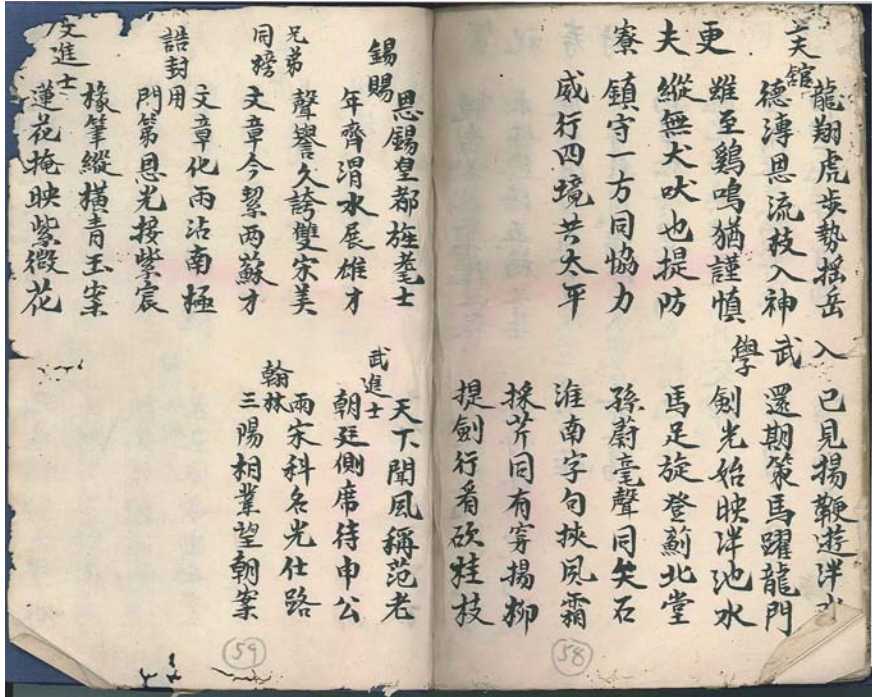 館
龍翔虎步勢摇岳
德溥恩流枝入神
更夫寮
雖至鷄鳴猶謹慎
縱無犬吠也提防
鎮守一方同協力
威行四境共太平
入武學
已見揚鞭遊泮水
還期策馬躍龍門
劍光始映泮池水
馬足旋登薊北堂
孫蔚毫聲同矢石
淮南字句挾風霜
採芹同有穿揚柳
提劍行看砍桂枝
58
錫賜
恩錫皇都旌耄士
年齊渭水展雄才
兄弟同榜
聲譽久誇雙宋美
文章今絜两蘇才
誥封用
文章化雨沾南極
門第恩光接紫宸
文進士
椽筆縱橫青玉案
蓮花掩映紫薇花
武進士
天下聞風稱范老
朝廷側席待申公
翰林
兩宋科名光仕路
三陽相業望朝案
59